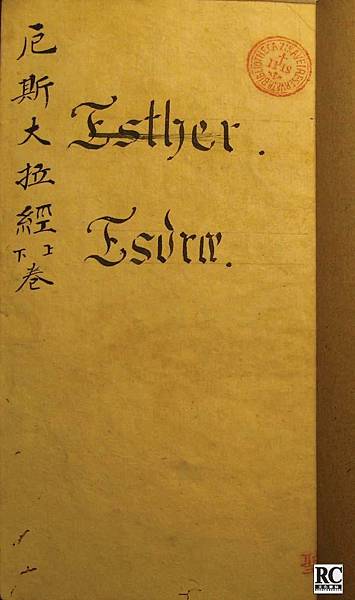 厄斯大拉經上下卷
Esther.
Esdræ.
聖
RC